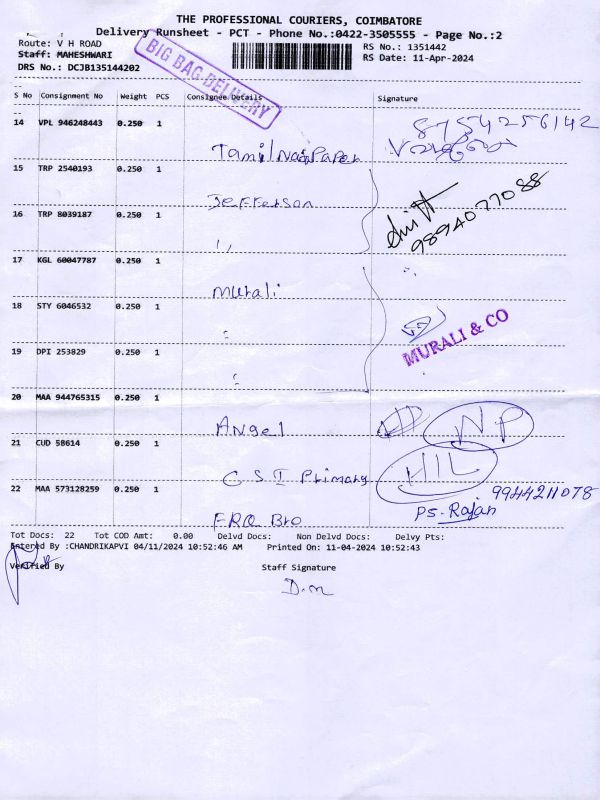 THE PROFESSIONAL COURIERS, COIMBATORE
Delivery Runsheet - PCT - Phone No.:0422-3505555 - Page No.:2
Route: V H ROAD
RS No.: 1351442
Staff: MAHESHWARI
RS Date: 11-Apr-2024
DRS No.: DCJB135144202
BIG BAG DELIVERY
S No Consignment No Weight PCS Consignee Details Signature
14 VPL 946248443 0.250 1
8754256142
Tamil Nadu Paper
15 TRP 2540193 0.250 1
Jefferson
16 TRP 8039187 0.250 1
9894077088
,,
17 KGL 60047787 0.250 1
Murali
18 STY 6046532 0.250 1
MURALI & CO
19 DPI 253829 0.250 1
20 MAA 944765315 0.250 1
Angel NP
21 CUD 58614 0.250 1
HIL
G S I Primary
22 MAA 573128259 0.250 1
9944211078
PS-Rajan
Tot Docs: 22 Tot COD Amt: 0.00 Delvd Docs: Non Delvd Docs: Delvy Pts:
Entered By :CHANDRIKAPVI 04/11/2024 10:52:46 AM Printed On: 11-04-2024 10:52:43
Verified By Staff Signature
D.m